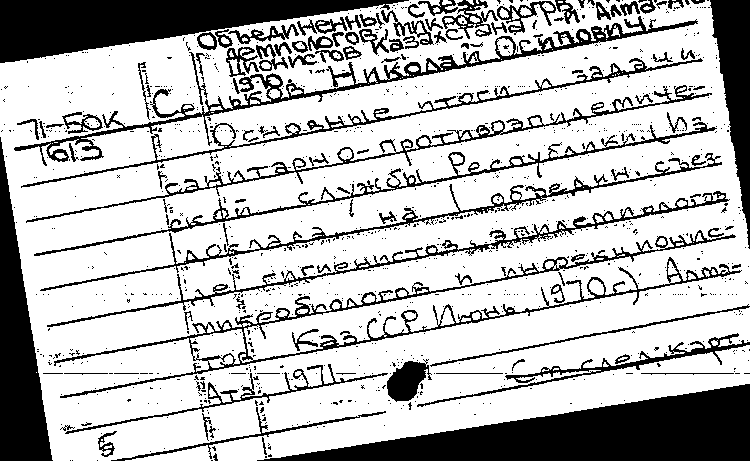 Объединенный съезд
демиологов, микробиологов и
ционистов Казахстана, 1-й. Алма-Ата
1970.
71-50К
1613
Сеньков, Николай Осипович.
Основные итоги и задачи
санитарно-противоэпидемиче-
ской службы Республики. (Из
доклада на I объедин. съез-
де гигиенистов, эпидемиологов
микробиологов и инфекционис-
тов КазССР. Июнь, 1970г.) Алма-
Ата, 1971.
См. след. карт.
Б